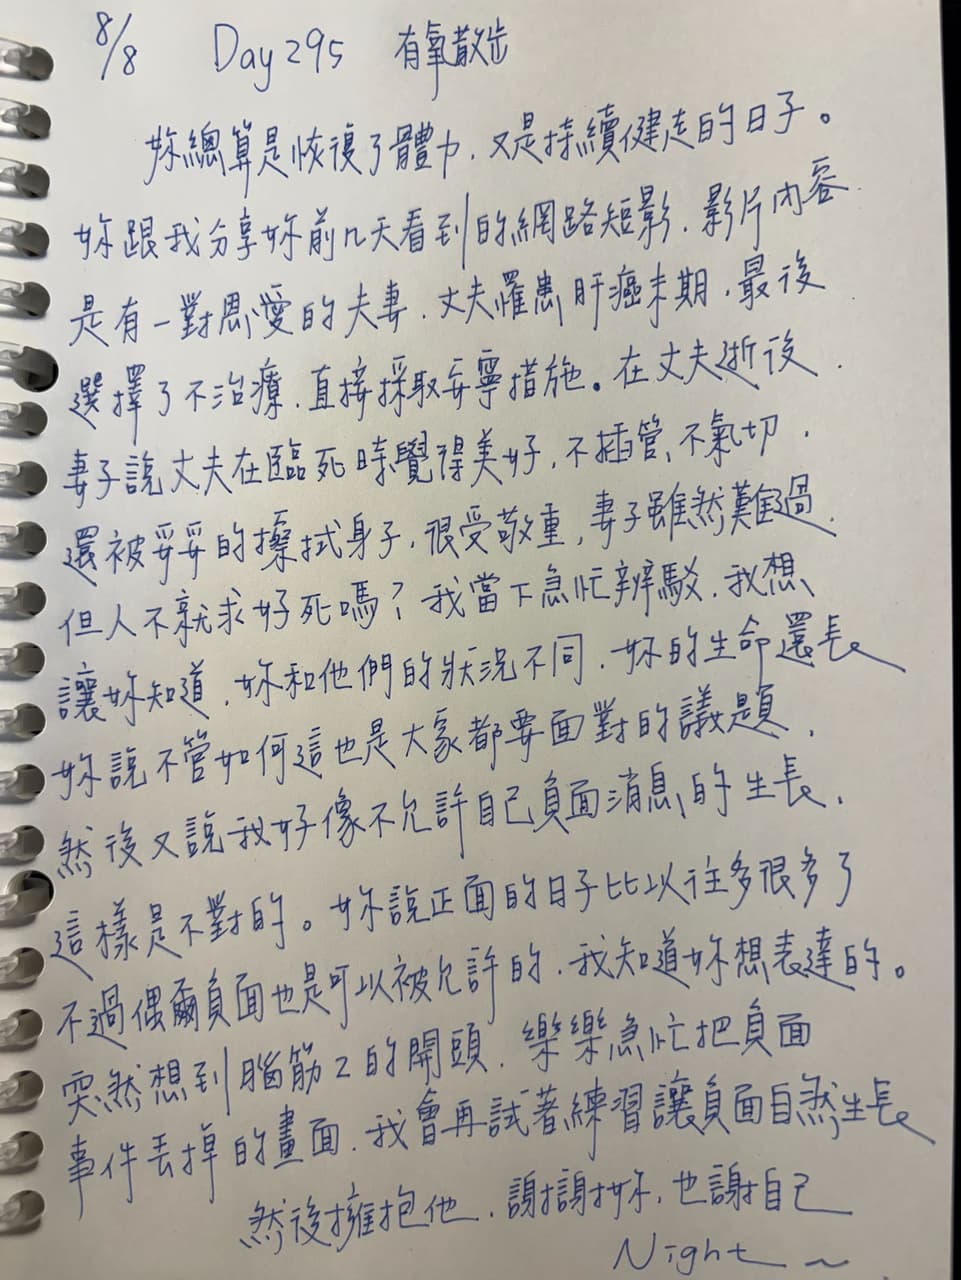 8/8 Day 295 有氧散步
妳總算是恢復了體力,又是持續健走的日子。
妳跟我分享妳前几天看到的網路短影,影片內容
是有一對恩愛的夫妻,丈夫罹患肝癌末期,最後
選擇了不治療,直接採取安寧措施。在丈夫逝後,
妻子說丈夫在臨死時覺得美好,不插管、不氣切,
還被妥妥的擦拭身子,很受敬重,妻子雖然難過,
但人不就求好死嗎?我當下急忙辨駁,我想
讓妳知道,妳和他們的狀況不同,妳的生命還長
妳說不管如何這也是大家都要面對的議題,
然後又說我好像不允許自己負面消息的生長,
這樣是不對的。妳說正面的日子比以往多很多了
不過偶爾負面也是可以被允許的,我知道妳想表達的。
突然想到腦筋2的開頭,樂樂急忙把負面
事件丟掉的畫面,我會再試著練習讓負面自然生長
然後擁抱他,謝謝妳,也謝自己
Night~